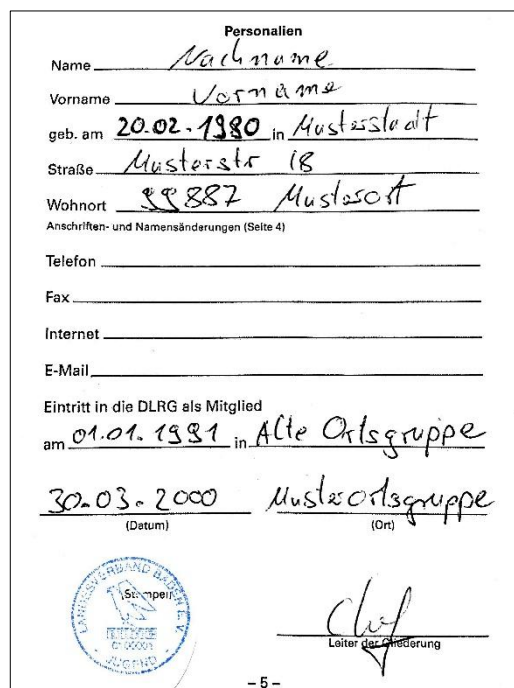 Personalien
Name Nachname
Vorname Vorname
geb. am 20.02.1980 in Musterstadt
Straße Musterstr 18
Wohnort 99887 Musterort
Anschriften- und Namensänderungen (Seite 4)
Telefon
Fax
Internet
E-Mail
Eintritt in die DLRG als Mitglied
am 01.01.1991 in Alte Ortsgruppe
30.03.2000 Musterortsgruppe
(Datum) (Ort)
LANDESVERBAND BADEN E.V.
(Stempel)
JUGEND
Chef
Leiter der Gliederung
– 5 –